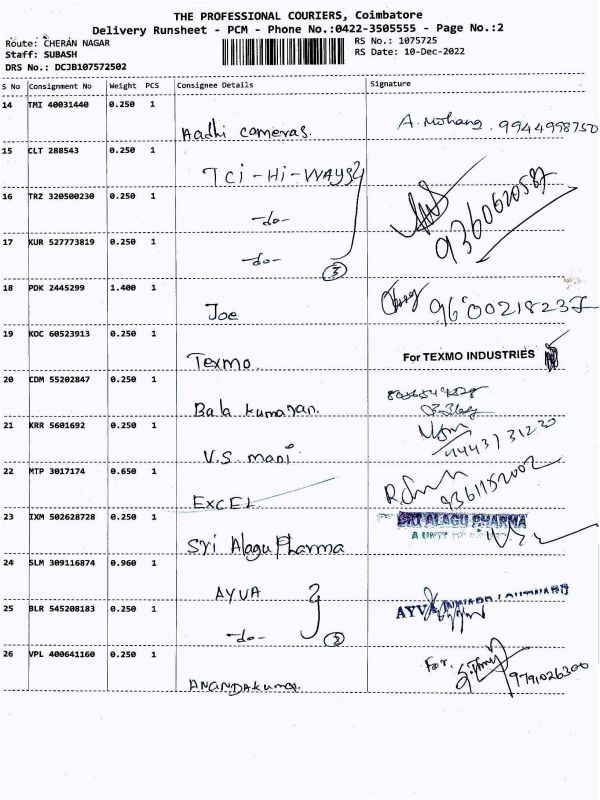 THE PROFESSIONAL COURIERS, Coimbatore
Delivery Runsheet - PCM - Phone No.:0422-3505555 - Page No.:2
Route: CHERAN NAGAR RS No.: 1075725
Staff: SUBASH RS Date: 10-Dec-2022
DRS No.: DCJB107572502
S No Consignment No Weight PCS Consignee Details Signature
14 TMI 40031440 0.250 1
Aadhi cameras. A. Mohang. 9944998750
15 CLT 288543 0.250 1
TCi-Hi-WAYS
16 TRZ 320500230 0.250 1
-do- 9360620587
17 KUR 527773819 0.250 1
-do- 3
18 PDK 2445299 1.400 1
Joe 9600218237
19 KOC 60523913 0.250 1
Texmo. For TEXMO INDUSTRIES
20 CDM 55202847 0.250 1
Bala kumaran.
21 KRR 5601692 0.250 1
V.S. mani
22 MTP 3017174 0.650 1
EXCEL 9361152002
23 IXM 502628728 0.250 1
SRI ALAGU PHARMA
Sri Alagu Pharma A UNIT
24 SLM 309116874 0.960 1
AYVA
25 BLR 545208183 0.250 1 AYVA
-do- 2
26 VPL 400641160 0.250 1
ANANDAkumar. For. 9791026300